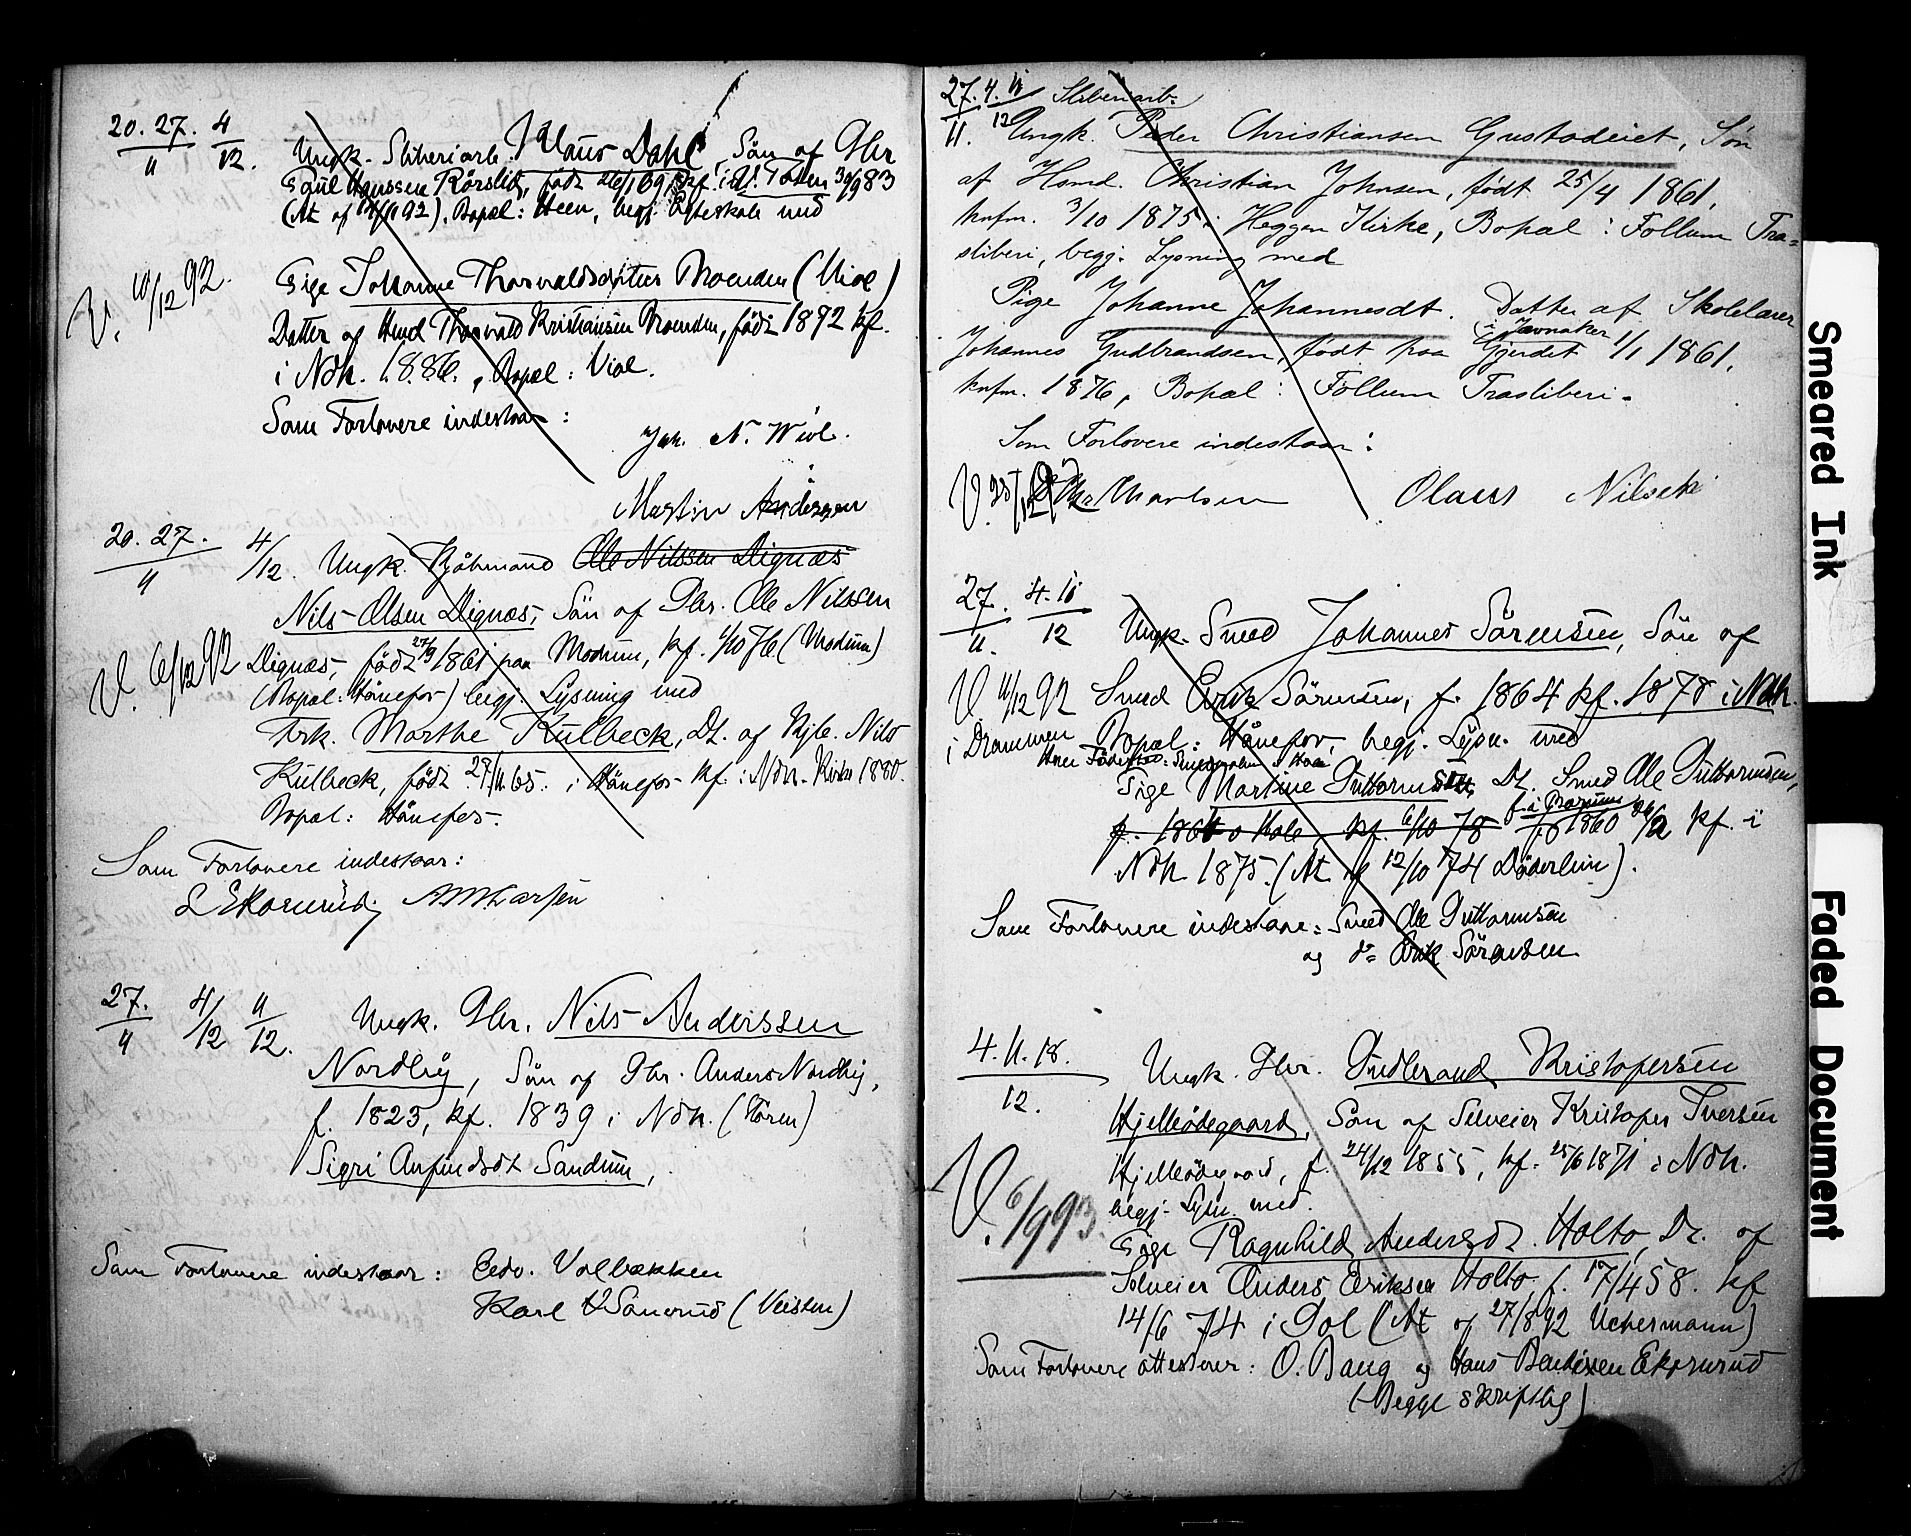 20. 27. 4
11 12.
Ungk. Sliberiarb. Hans Dahl, Sön af Gbr
Paul Hanssen Rörslid, född 26/1 69, kf. i V. Toten 30/9 83
(At. af 12/11 92). Bopæl: Heen, begj. Egteskab med
V. 10/12 92.
Pige Johanne Thorvaldsdatter Moenden (Viol)
Datter af Hmd Thorvald Kristiansen Moenden, född 1872 kf.
i Ndh. 1886, Bopæl: Viol.
Som Forlovere indestaar:
Joh. N. Wiol.
Martin Andersen
20. 27. 4
11 /12. Ungk. Kjöbmand Ole Nilssen Dignæs
Nils Olsen Dignæs, Sön af Gbr. Ole Nilssen
V. 6/12 92 Dignæs, född 27/9 1861 paa Modum, kf. 1/10 76 (Modum)
(Bopæl: Hönefos) begj. Lysning med
Frk. Marthe Kulbeck, Dt. af Kjb. Nils
Kulbeck, född 27/11 65. i Hönefos kf. i Ndh. Kirke 1880.
Bopæl: Hönefos.
Som Forlovere indestaar:
L Ekornrud, Larsen
27. 4/ 11
11 12 12.
Ungk. Gbr. Nils Anderssen
Nordby, Sön af Gbr. Anders Nordby,
f. 1823, kf. 1839 i Ndh. (Stören)
Sigri Arfindsdt Sandum,
Som Forlovere indestaar: Edv. Volbækken
Karl Sonerud (Veisten)
27. 4. 11 Sliberiarb.
11. 12 Ungk. Peder Christiansen Gustadeiet, Søn
af Hsmd. Christian Johnsen, født 25/4 1861,
knfm. 3/10 1875 i Heggen Kirke, Bopæl: Follum Træ=
sliberi, begj. Lysning med
Pige Johanne Johannesdt. Datter af Skolelærer
i Jevnaker
Johannes Gudbrandsen, født paa Gjerdet 1/1 1861,
knfm. 1876, Bopæl: Follum Træsliberi.
Som Forlovere indestaar:
V. Chr. Charlsen Olaus Nilsen
27. 4. 11
11. 12 Ungk. Smed Johannes Sörensen, Sön af
V 11/12 92 Smed Erik Sörensen, f. 1864 kf. 1878 i Ndh.
i Drammen Bopæl: Hönefos, begj. Lysn. med
Pige Martine Guttormsdt. Dt. Smed Ole Guttormsen,
f. i Modum
f. 1864 o Hole, kf. 6/10 78 1860 kf. i
Ndh 1875. (At af 12/10 74 Döderlein).
Som Forlovere indestaar: Smed Ole Guttormsen
og do Erik Sörensen
4. 11. 18.
12.
Ungk. Gbr. Gudbrand Kristofersen
Hjelleödegaard, Sön af Selveier Kristofer Iversen
Hjelleödegaard, f. 24/12 1855, kf. 25/6 1871 i Ndh.
begj. Lysn. med.
V. 6/9 93.
Pige Ragnhild Andersdt. Holto, Dt. af
Selveier Anders Eriksen Holto, f. 17/4 58. kf
14/6 74 i Gol (At af 27/8 92 Uchermann)
Som Forlovere attesterer: O. Bang og Hans Bendixen Ekornrud
(Begge skriftlig)
Smeared Ink
Faded Document